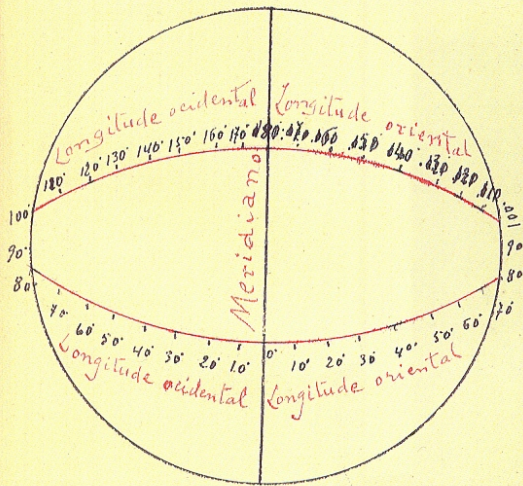 Longitude ocidental Longitude oriental
100° 110° 120° 130° 140° 150° 160° 170° 180° 170° 160° 150° 140° 130° 120° 110° 100°
90° 90°
Meridiano
80° 70° 60° 50° 40° 30° 20° 10° 0° 10° 20° 30° 40° 50° 60° 70° 80°
Longitude ocidental Longitude oriental